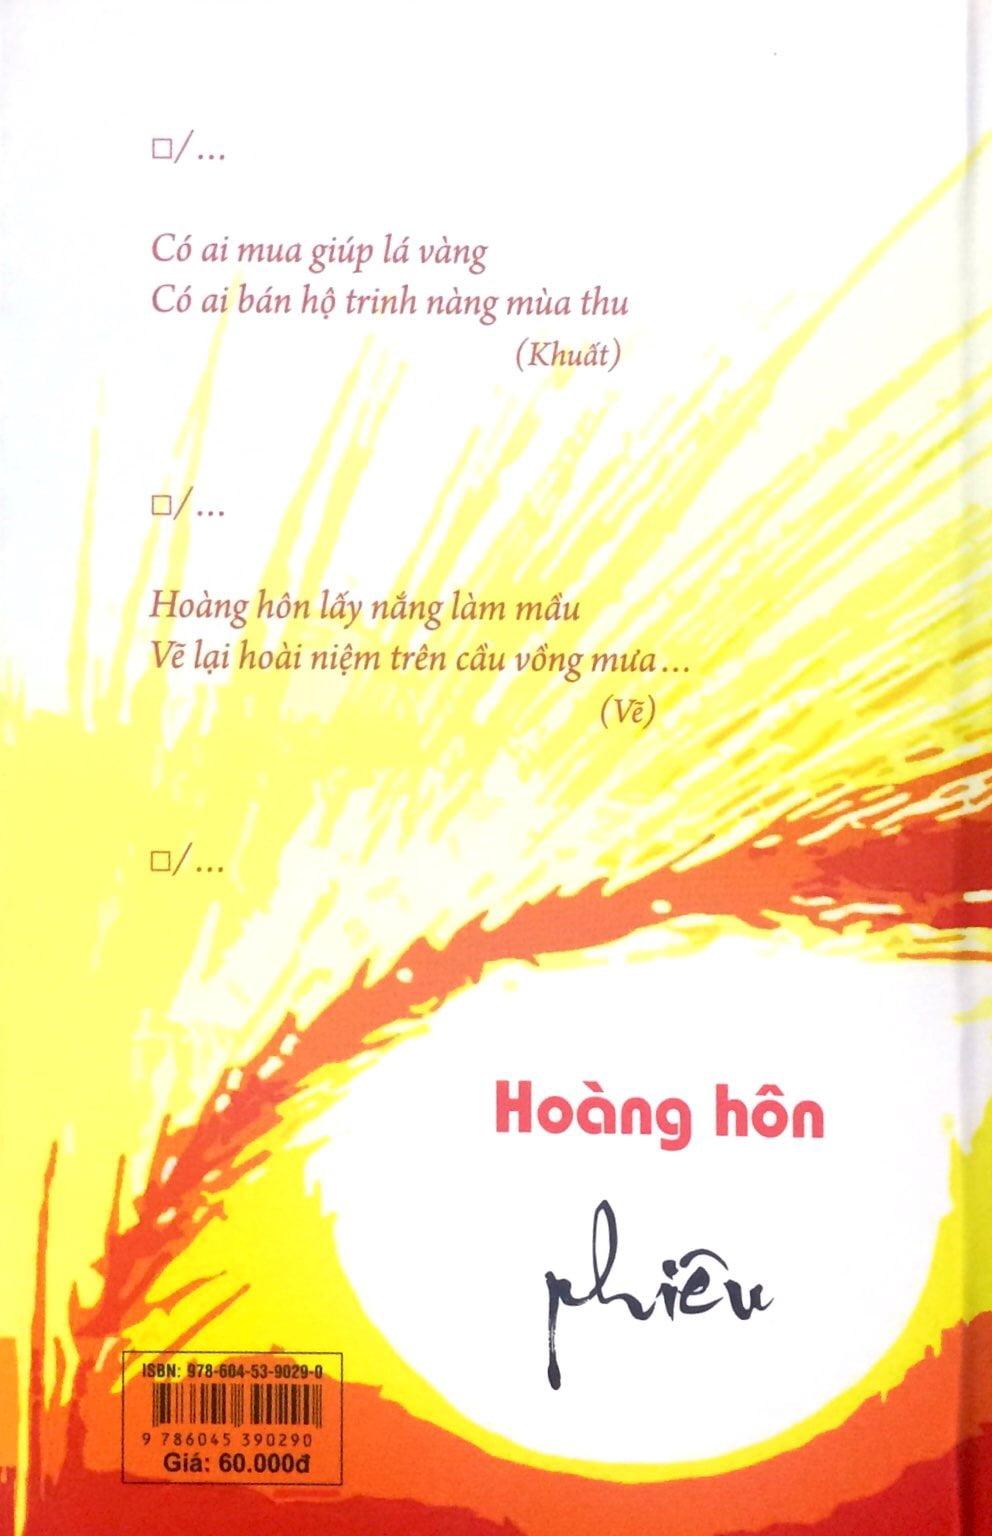 □/...
Có ai mua giúp lá vàng
Có ai bán hộ trinh nàng mùa thu
(Khuất)
□/...
Hoàng hôn lấy nắng làm mầu
Vẽ lại hoài niệm trên cầu vồng mưa...
(Vẽ)
□/...
Hoàng hôn
phiêu
ISBN: 978-604-53-9029-0
9 786045 390290
Giá: 60.000đ